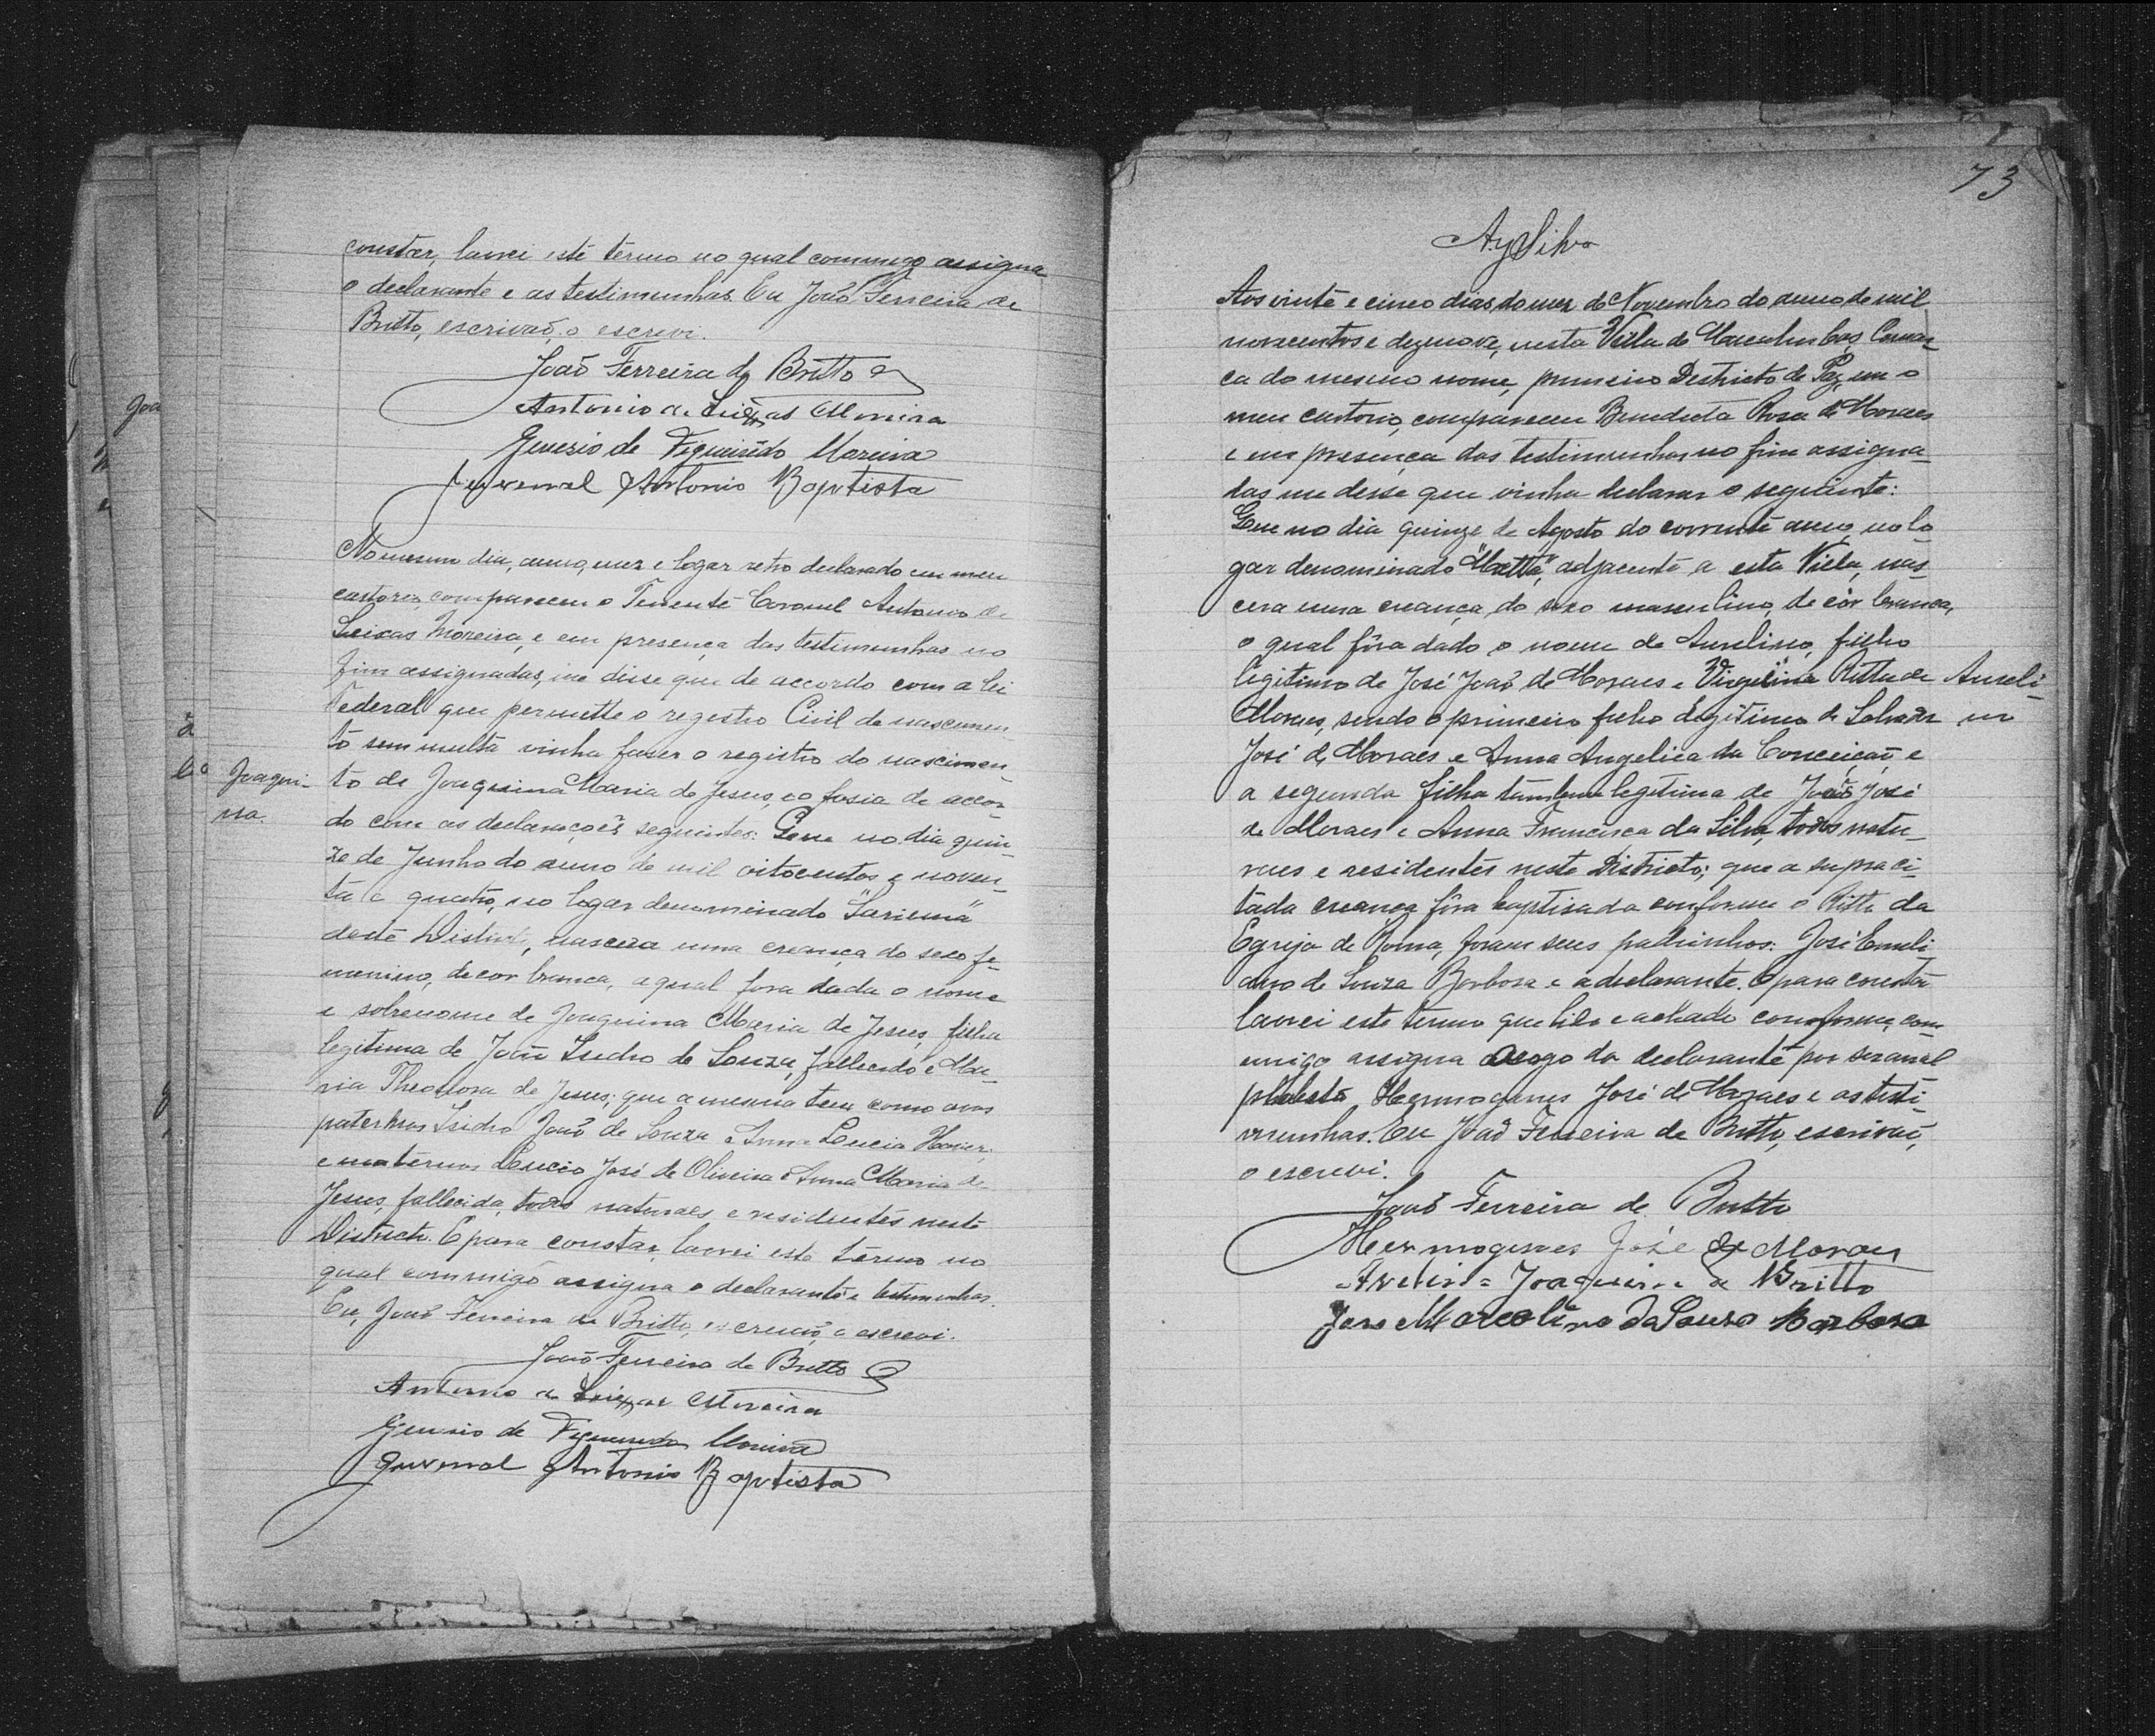 constar, lavrei este termo no qual commigo assigna
o declarante e as testimunhas. Eu João Ferreira de
Britto, escrivão, o escrevi.
João Ferreira de Britto
Antonio de Seixas Moreira
Genesio de Figueirêdo Moreira
Juvenal Antonio Baptista
No mesmo dia, anno, mez e logar retro declarado em meu
cartorio, compareceu o Tenente Coronel Antonio de
Seixas Moreira, e em presença das testimunhas no
fim assignadas, me disse que de accordo com a lei
Federal que permette o registro Civil de nascimen-
to sem multa vinha faser o registro do nascimen-
Joaqui-
na.
to de Joaquina Maria de Jesus, e o fasia de accor-
do com as declarações seguintes: Que no dia quin-
ze de Junho do anno de mil oitocentos e noven-
ta e quatro, no logar denominado "Sariema"
deste Districto, nascera uma creança do sexo fe-
menino, de cor branca, a qual fora dada o nome
e sobrenome de Joaquina Maria de Jesus, filha
legitima de João Isidro de Souza, fallecido e Ma-
ria Theodora de Jesus; que a mesma tem como avós
paternos Isidro João de Souza e Anna Lucia
e maternos Lucio José de Oliveira e Anna Maria de
Jesus, fallecida, todos naturaes e residentes neste
Districto. E para constar, lavrei este termo no
qual commigo assigna o declarante e testimunhas.
Eu, João Ferreira de Britto, escrivão o escrevi.
João Ferreira de Britto
Antonio de Seixas Moreira
Genesio de Figueiredo Moreira
Juvenal Antonio Baptista
73
AySilva
Aos vinte e cinco dias do mez de Novembro do anno de mil
novecentos e dezenove, nesta Villa de Macahubas, Comar-
ca do mesmo nome, primeiro Destricto de Paz, em o
meu cartorio, compareceu Benedicta Rosa de Moraes
e em presença das testimunhas no fim assigna-
das me desse que vinha declarar o seguinte:
Que no dia quinze de Agosto do corrente anno, no lo-
gar denominado "Matta", adjacente a esta Villa, nas-
cera uma creança do sexo masculino, de côr branca,
o qual fôra dado o nome de Aurelino, filho
legitimo de José João de Moraes e Virgilina Ritta de
Aureli-
no
Moraes, sendo o primeiro filho legitimo de Salvador
José de Moraes e Anna Angelica da Conceição e
a segunda filha tambem legitima de João José
de Moraes e Anna Francisca da Silva, todos natu-
raes e residentes neste Districto; que a supraci-
tada creança fôra baptisada conforme o Ritto da
Egreja de Roma, foram seus padrinhos: José Emili-
ano de Souza Barbosa e a declarante. E para constar
lavrei este termo que lido e achado conforme, com-
migo assigna arogo da declarante por ser anal-
phabeta Hermogenes José de Moraes e as testi-
munhas. Eu João Ferreira de Britto, escrivão,
o escrevi.
João Ferreira de Britto
Hermogenes José de Moraes
Joaquim de Britto
Jose Marcolino da Souza Barbosa